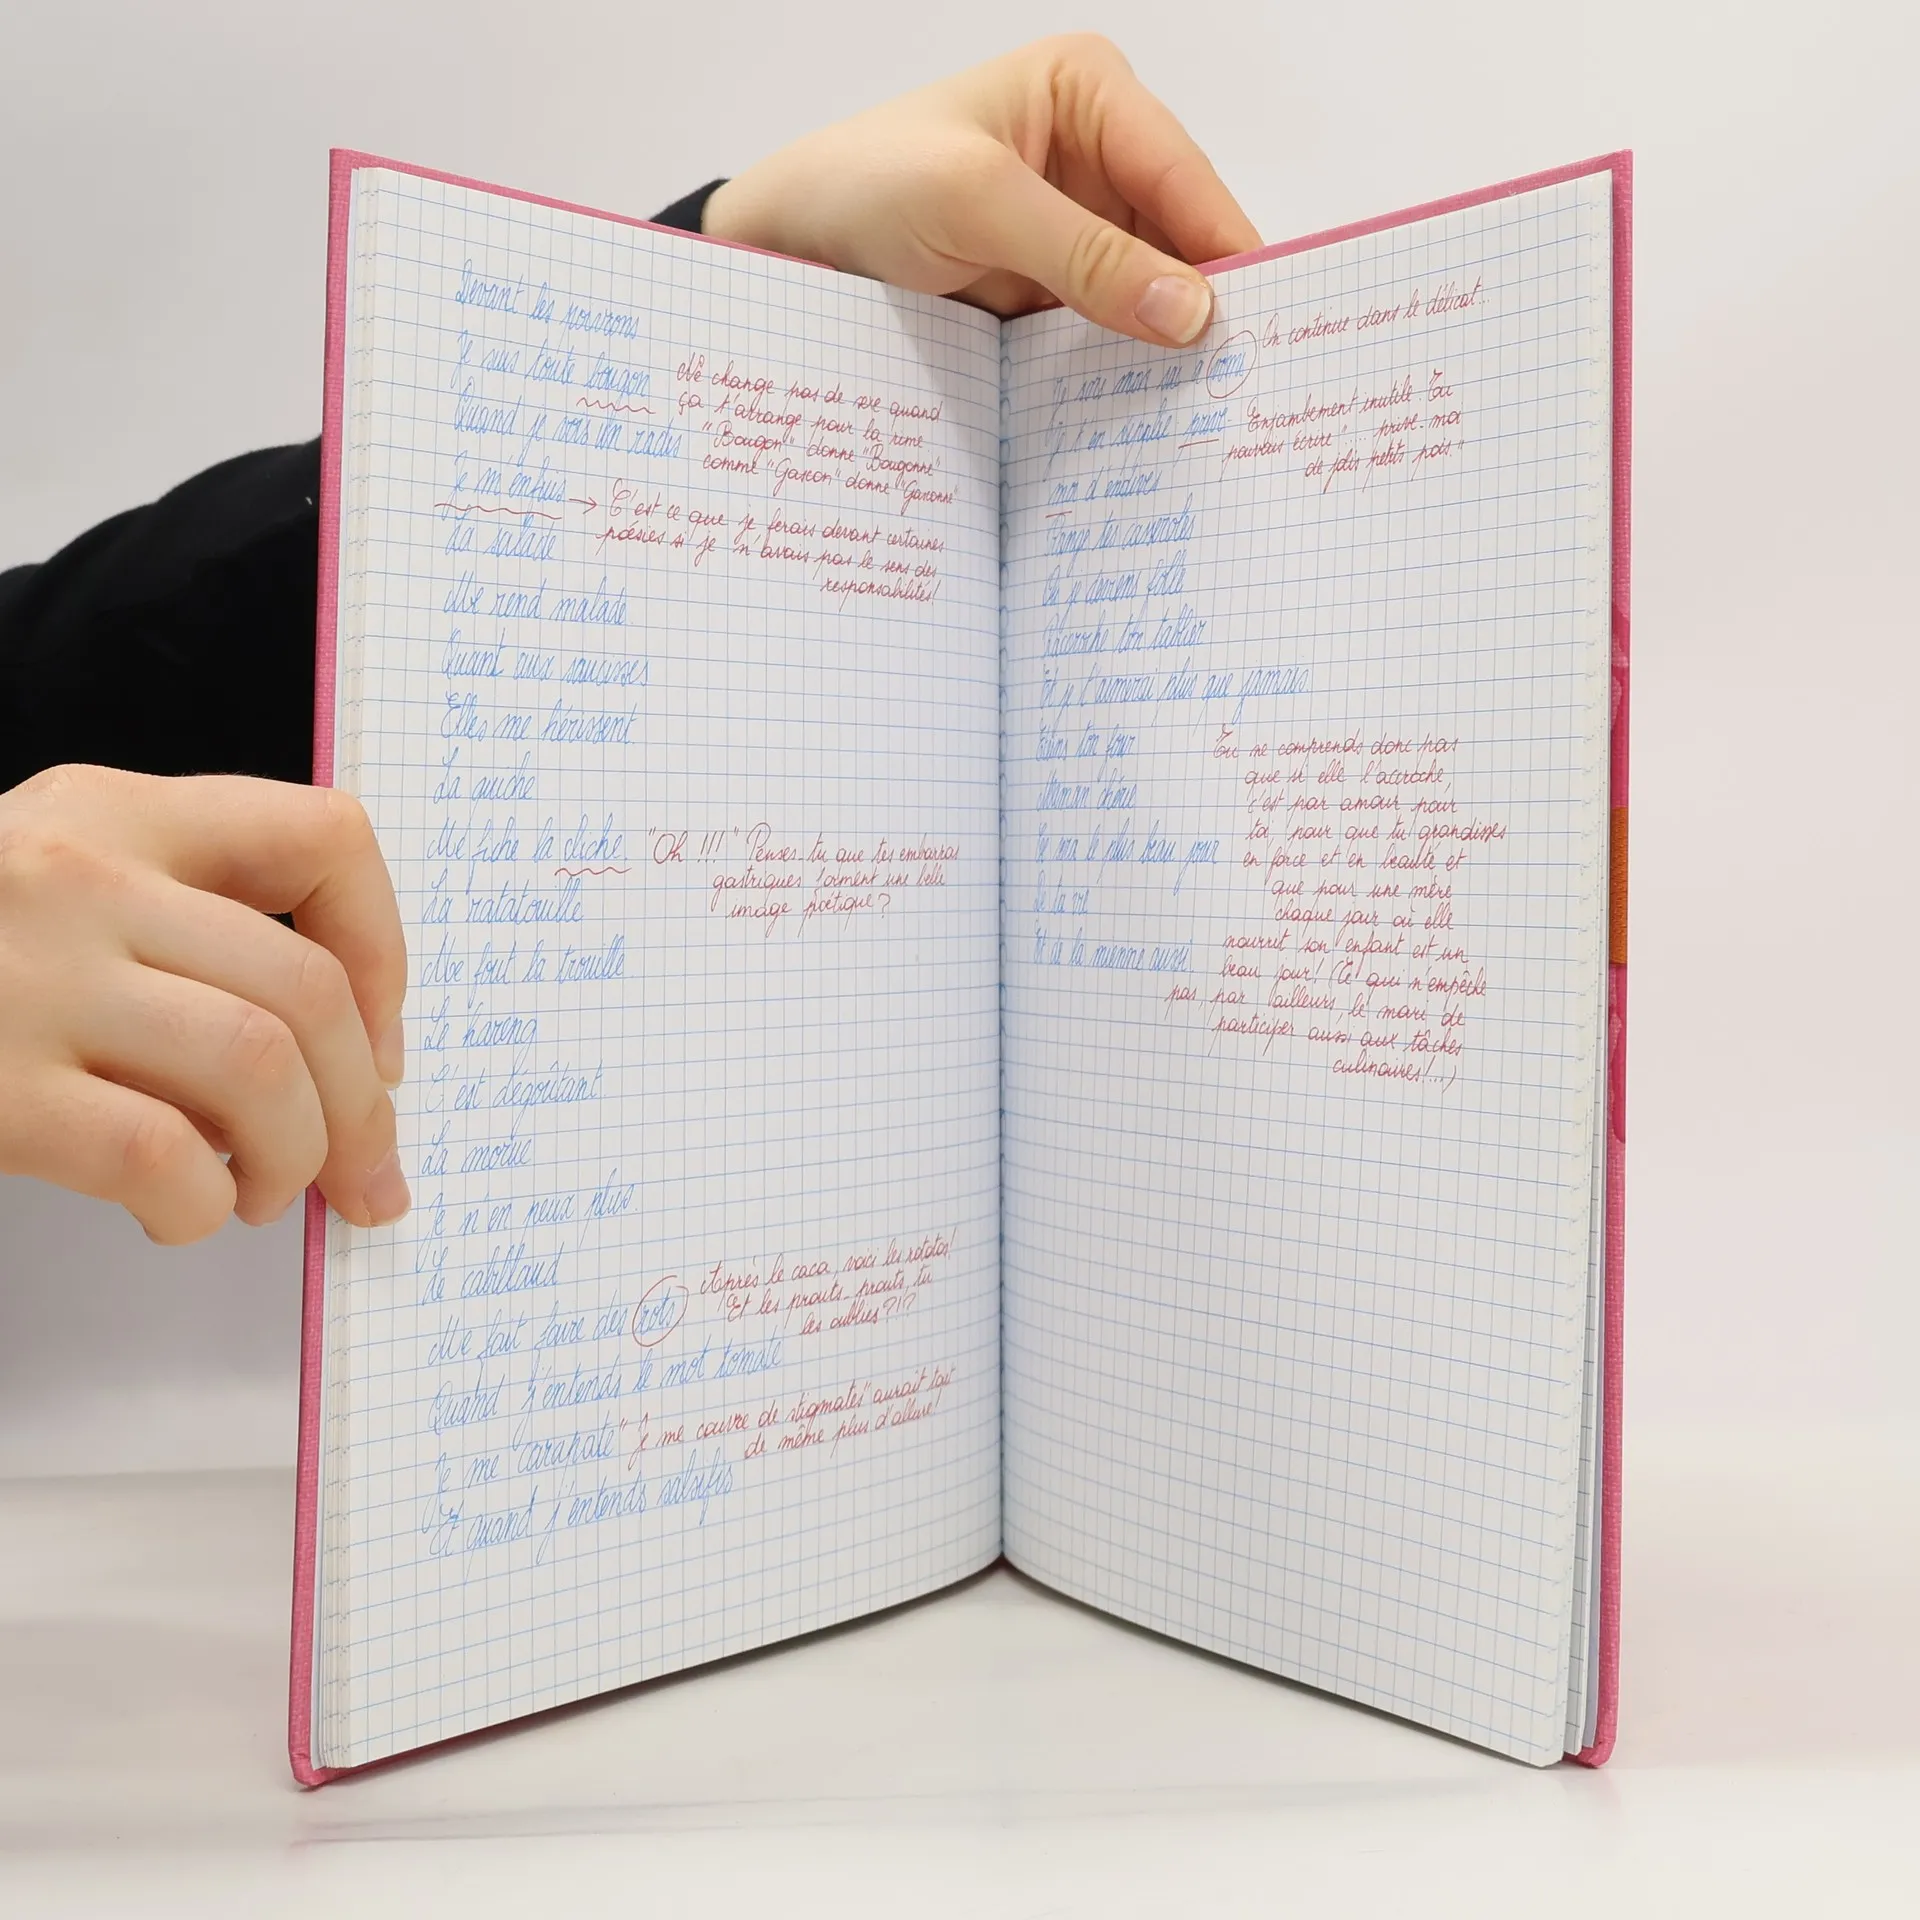 Devant les poivrons
Je suis toute bougon
Ne change pas de sexe quand
ça t'arrange pour la rime
"Bougon" donne "Bougonne"
comme "Gascon" donne "Gasconne"
Quand je vois un radis
Je m'enfuis →
C'est ce que je ferais devant certaines
poésies si je n'avais pas le sens des
responsabilités!
La salade
Me rend malade.
Quant aux saucisses
Elles me hérissent.
La quiche
Me fiche la chiche.
"Oh !!!" Penses-tu que tes embarras
gastriques forment une belle
image poétique?
La ratatouille
Me fout la trouille.
Le hareng
C'est dégoûtant.
La morue
Je n'en peux plus.
Le cabillaud
Me fait faire des rots
Après le caca, voici les rototos!
Et les prouts-prouts, tu
les oublies?!?
Quand j'entends le mot tomate
Je me carapate
"Je me couvre de stigmates" aurait tout
de même plus d'allure!
Et quand j'entends salsifis
Je sors mon sac à vomi
On continue dans le délicat...
Je t'en supplie prive-
Enjambement inutile. Tu
pouvais écrire "... prive-moi
de jolis petits pois."
moi d'endives
Range tes casseroles
Ou je deviens folle
Raccroche ton tablier
Et je t'aimerai plus que jamais.
Éteins ton four
Maman chérie
Ce sera le plus beau jour
De ta vie
Et de la mienne aussi.
Tu ne comprends donc pas
que si elle l'accroche,
c'est par amour pour
toi, pour que tu grandisses
en force et en beauté et
que pour une mère
chaque jour où elle
nourrit son enfant est un
beau jour! (Ce qui n'empêche
pas, par ailleurs, le mari de
participer aussi aux tâches
culinaires!...)